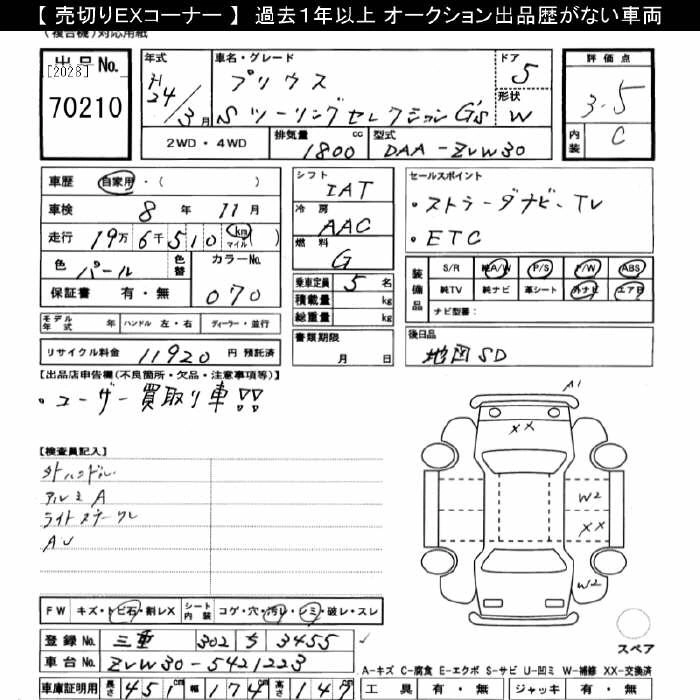 【 売切りEXコーナー 】 過去１年以上 オークション出品歴がない車両
(複合機)対応用紙
出品No.
[2028]
70210
年式
H24/3月
車名・グレード
プリウス
Sツーリングセレクション G's
ドア
5
形状
W
評価点
3.5
内装
C
2WD・4WD
排気量
1800 cc
型式
DAA-ZVW30
車歴 自家用・( )
車検 8年 11月
走行 19万6千510 km マイル ( )
色 パール
色替
カラーNo.
070
保証書 有・無
シフト
IAT
冷房
AAC
燃料
G
乗車定員 5名
積載量 kg
総重量 kg
セールスポイント
・ストラーダナビ-TV
・ETC
装備品
S/R 純A/W P/S P/W ABS
純TV 純ナビ 革シート 外ナビ エアB
ナビ型番:
モデル年式 年 ハンドル 左・右 ディーラー・並行
書類期限
月 日
後日品
地図SD
リサイクル料金 11920 円 預託済
【出品店申告欄(不良箇所・欠品・注意事項等)】
・ユーザー買取り車!!
【検査員記入】
外ハンドル
アルミ A
A1
XX
W2
XX
W2
スペア
FW キズ・トビ石・割レX シート内装 コゲ・穴・汚レ・シミ・破レ・スレ
登録No. 三重 302 ち 3455
車台No. ZVW30-5421223
車庫証明用 長さ 451cm 幅 174cm 高さ 149
A-キズ C-腐食 E-エクボ S-サビ U-凹ミ W-補修 XX-交換済
工具 有・無 ジャッキ 有・無